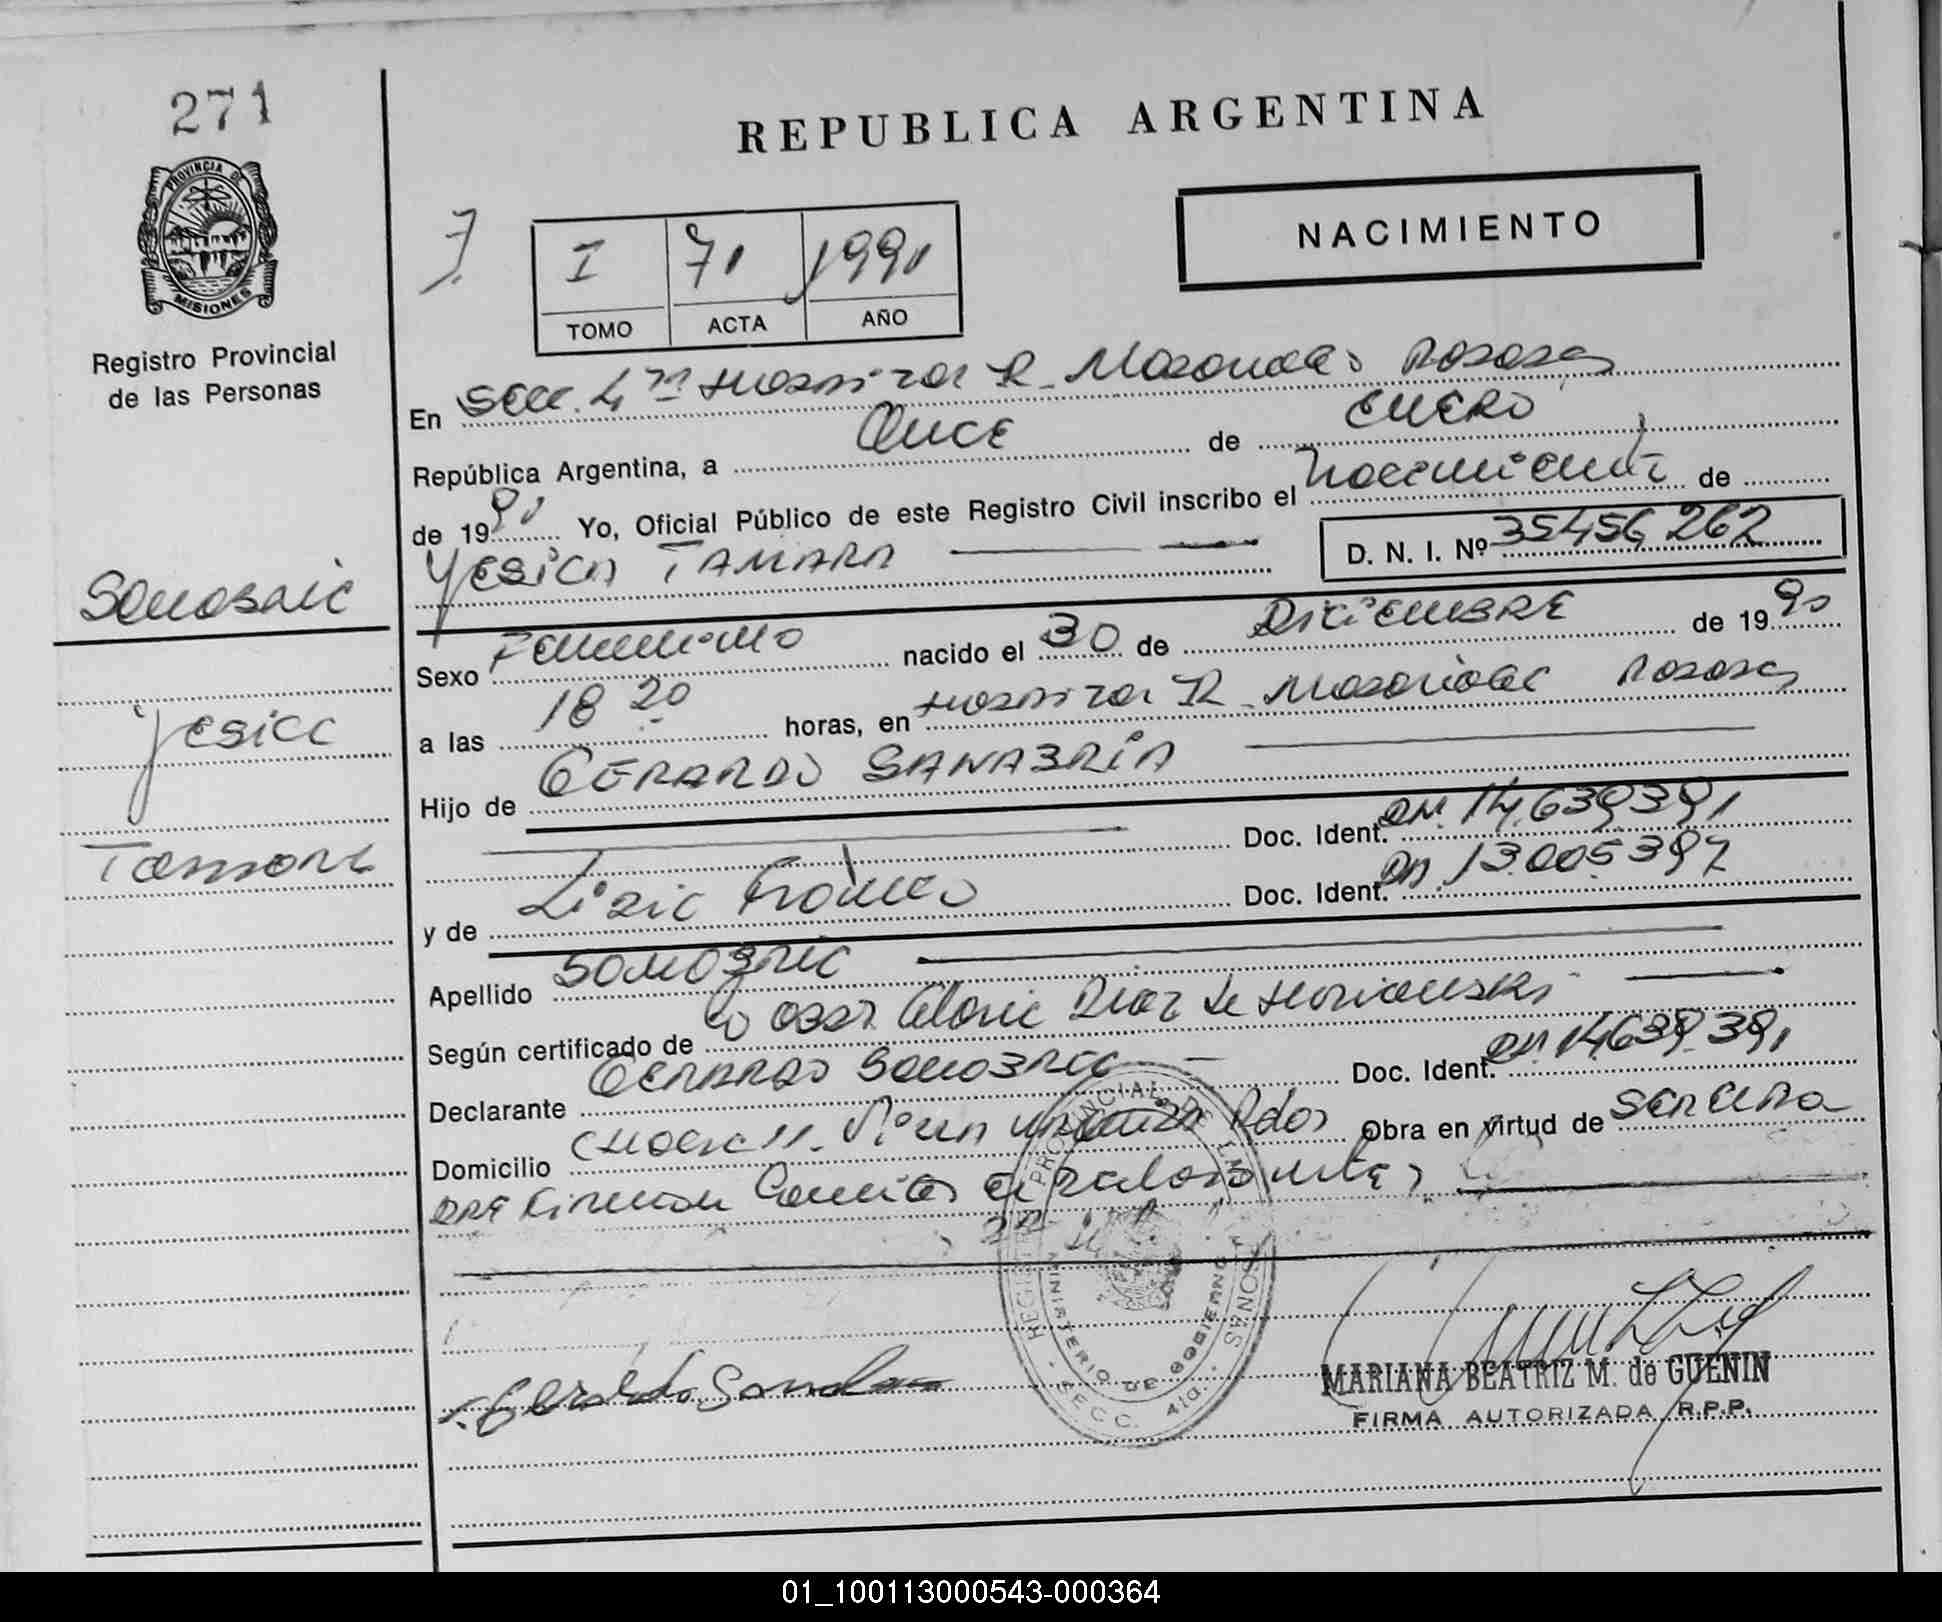 271
PROVINCIA DE
MISIONES
Registro Provincial
de las Personas
REPUBLICA ARGENTINA
NACIMIENTO
I 71 1991
TOMO ACTA AÑO
En Secc. 4ta Hospital R. Madariaga Posadas
República Argentina, a Once de ENERO
de 1991 Yo, Oficial Público de este Registro Civil inscribo el Nacimiento de
YESICA TAMARA
D. N. I. Nº 35456262
Sanabria
Yesica
Tamara
Sexo Femenino nacido el 30 de DICIEMBRE de 1990
a las 18 20 horas, en Hospital R. Madariaga Posadas
Hijo de GERARDO SANABRIA
Doc. Ident. DNI. 14.639391
y de Doc. Ident. DNI. 13.005397
Apellido SANABRIA
Según certificado de Gloria Diaz de
Declarante GERARDO SANABRIA Doc. Ident. DNI. 14639.391
Domicilio Chacra 11. Obra en virtud de
REGISTRO PROVINCIAL DE LAS PERSONAS
MINISTERIO DE GOBIERNO
SECC. 4ta.
Gerardo Sanabria
MARIANA BEATRIZ M. de GUENIN
FIRMA AUTORIZADA R.P.P.
01_100113000543-000364